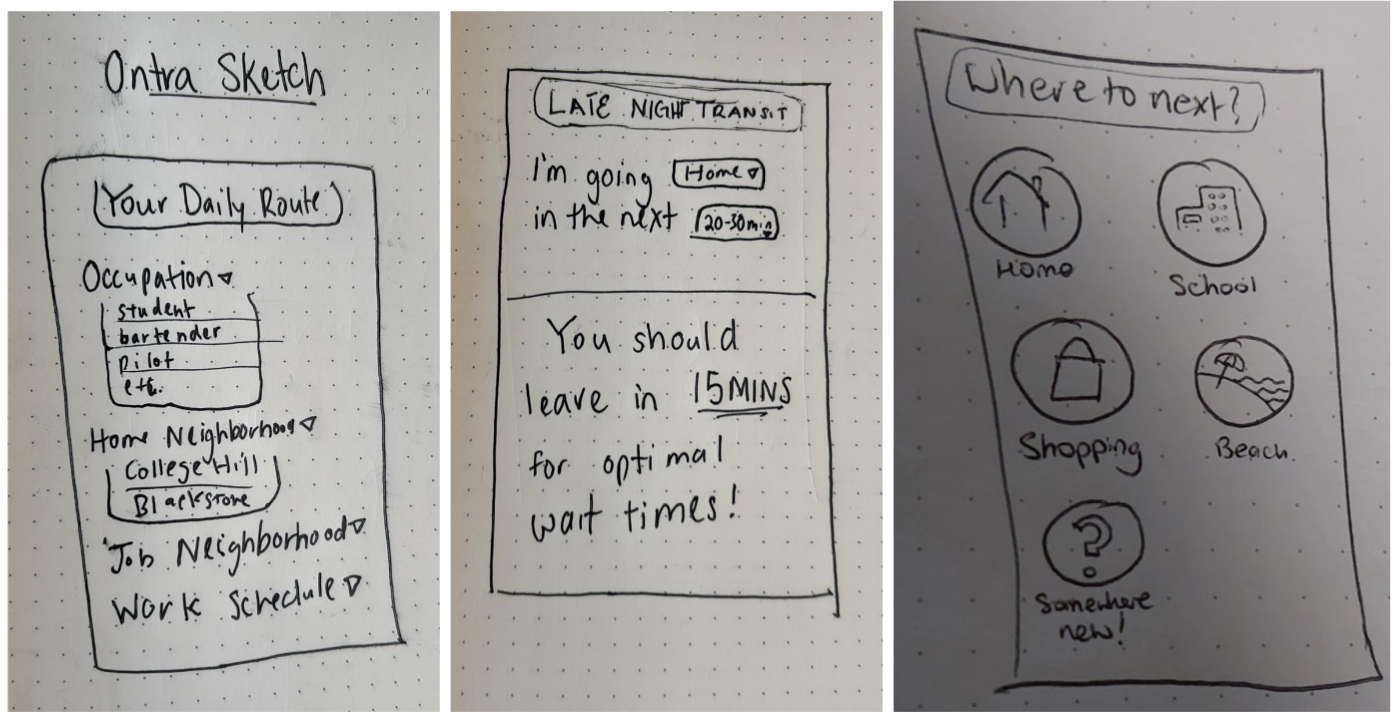 Ontra Sketch
Your Daily Route
Occupation
student
bartender
pilot
etc.
Home Neighborhood
College Hill
Blackstone
Job Neighborhood
Work Schedule
LATE NIGHT TRANSIT
I'm going Home
in the next 20-30 min
You should
leave in 15 MINS
for optimal
wait times!
Where to next?
Home
School
Shopping
Beach
Somewhere
new!